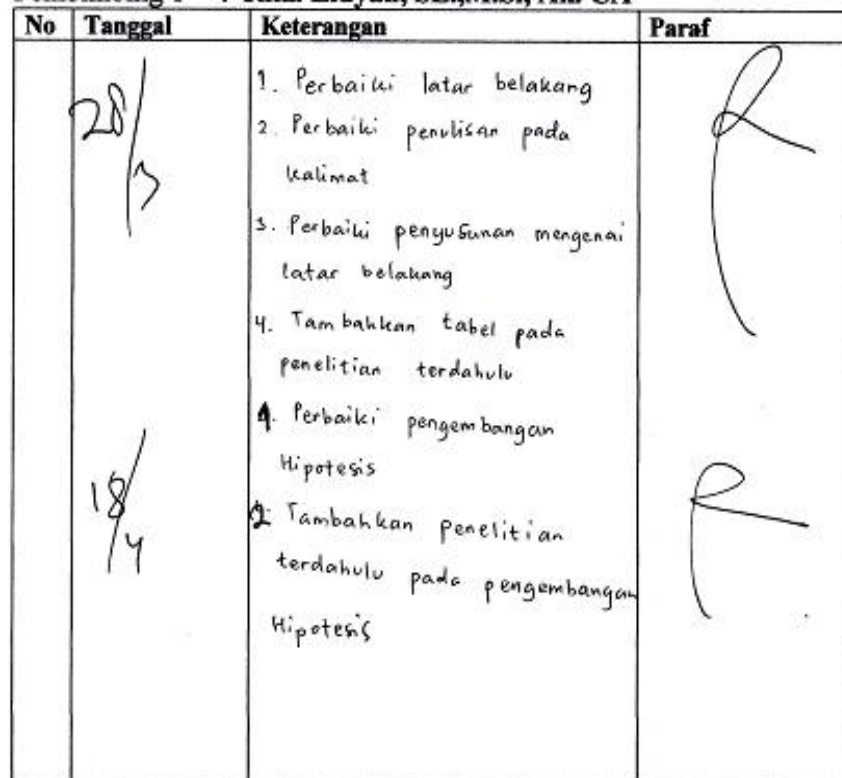 No Tanggal Keterangan Paraf
28/3
1. Perbaiki latar belakang
2. Perbaiki penulisan pada
kalimat
3. Perbaiki penyusunan mengenai
latar belakang
4. Tambahkan tabel pada
penelitian terdahulu
18/4
1. Perbaiki pengembangan
Hipotesis
2. Tambahkan penelitian
terdahulu pada pengembangan
Hipotesis